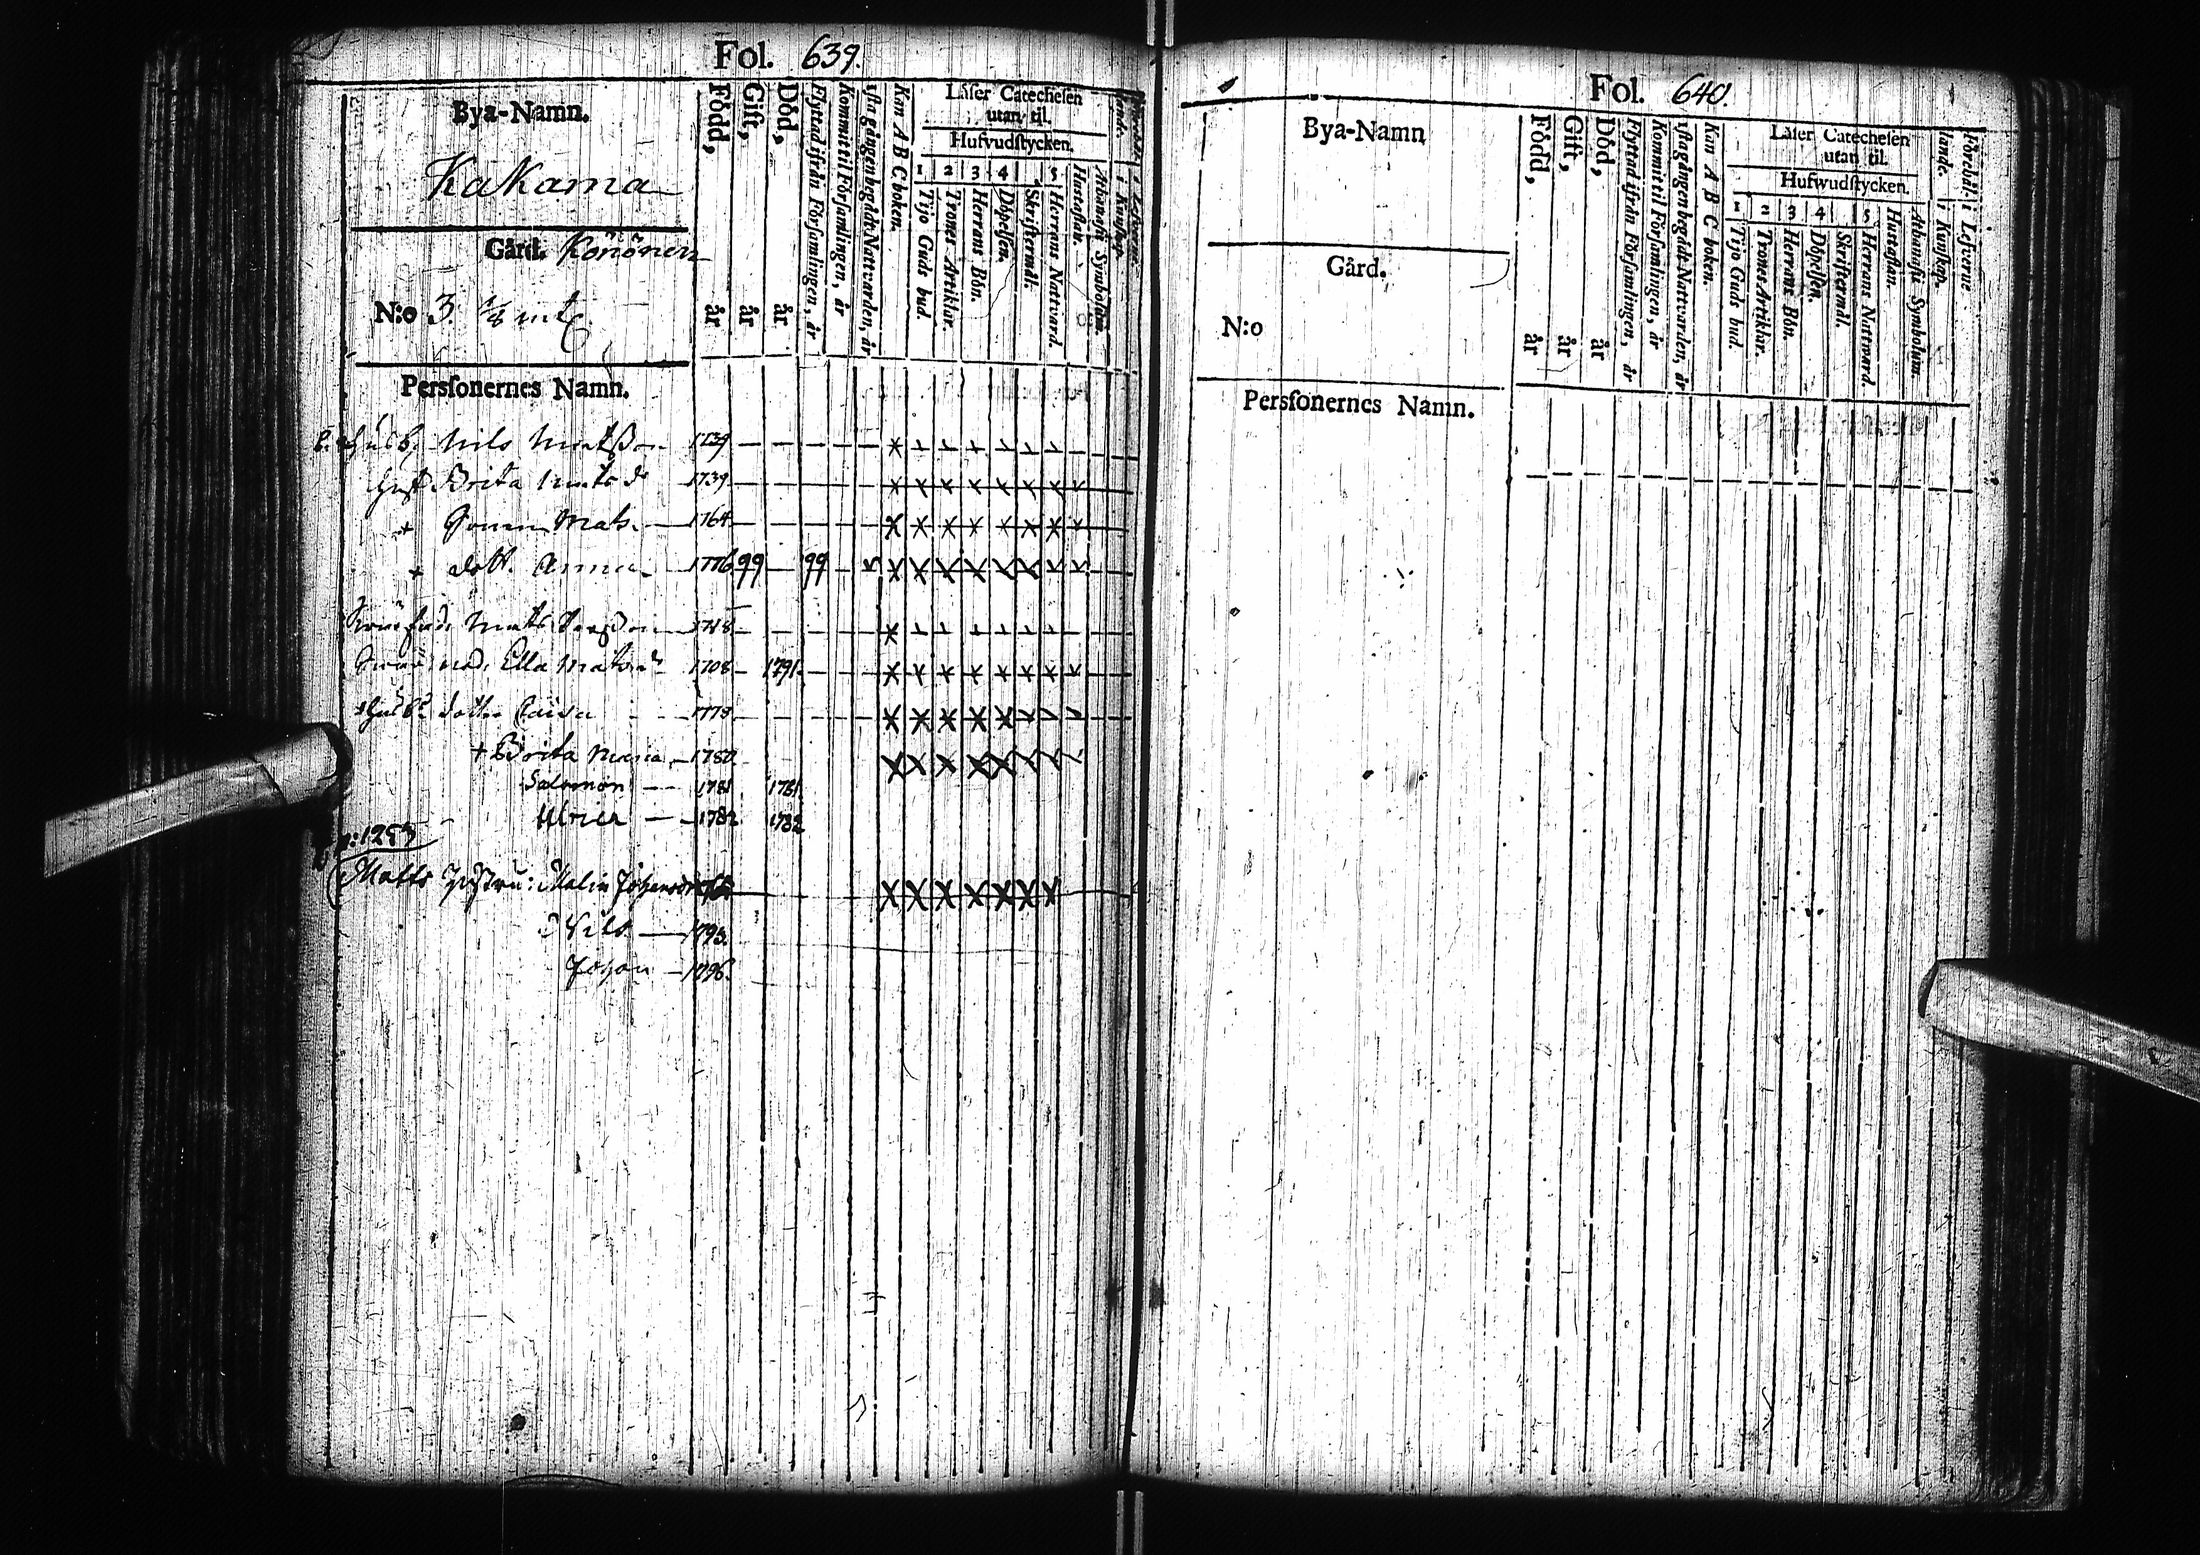 Fol. 639.
Bya-Namn.
Kakama
Gård. Könönen
N:o 3. 1/8 mtl
Persſonernes Namn.
Född, år
Gift, år
Död, år
Flyttad ifrån Förſamlingen, år
Kommit til Förſamlingen, år
1ſta gången begådt Nattvarden, år
Kan A B C boken.
Läſer Catecheſen
utan til.
Hufvudſtycken.
1 2 3 4 5
Tijo Guds bud.
Trones Artiklar.
Herrans Bön.
Döpelſen.
Skriftermål.
Herrans Nattvard.
Huſtaflan.
Athanaſii Symbolum.
Nils Matsson 1739
Hust. Brita Mats dr 1739
+ Mats 1764
+ dott. Anna 1776 99 99
Mats 1718
Ella Matsdr 1708 1791
dotter Caisa 1778
+ Brita Maria 1780
Salomon 1781 1781
Ulrica 1782 1782
p: 1253
Matts Hustru: Malin Johansdr
Nils 1793.
Johan 1796.
Fol. 640.
Bya-Namn
Gård.
N:o
Persſonernes Namn.
Född, år
Gift, år
Död, år
Flyttad ifrån Förſamlingen, år
Kommit til Förſamlingen, år
1ſta gången begådt Nattvarden, år
Kan A B C boken.
Läſer Catecheſen
utan til.
Hufwudſtycken.
1 2 3 4 5
Tijo Gud bud.
Trones Artiklar.
Herrans Bön.
Döpelſen.
Skriftermål.
Herrans Nattward.
Huſtaflan.
Athanaſii Symbolum.
Förebål i Lefverne.
lande. i Kunſkap.